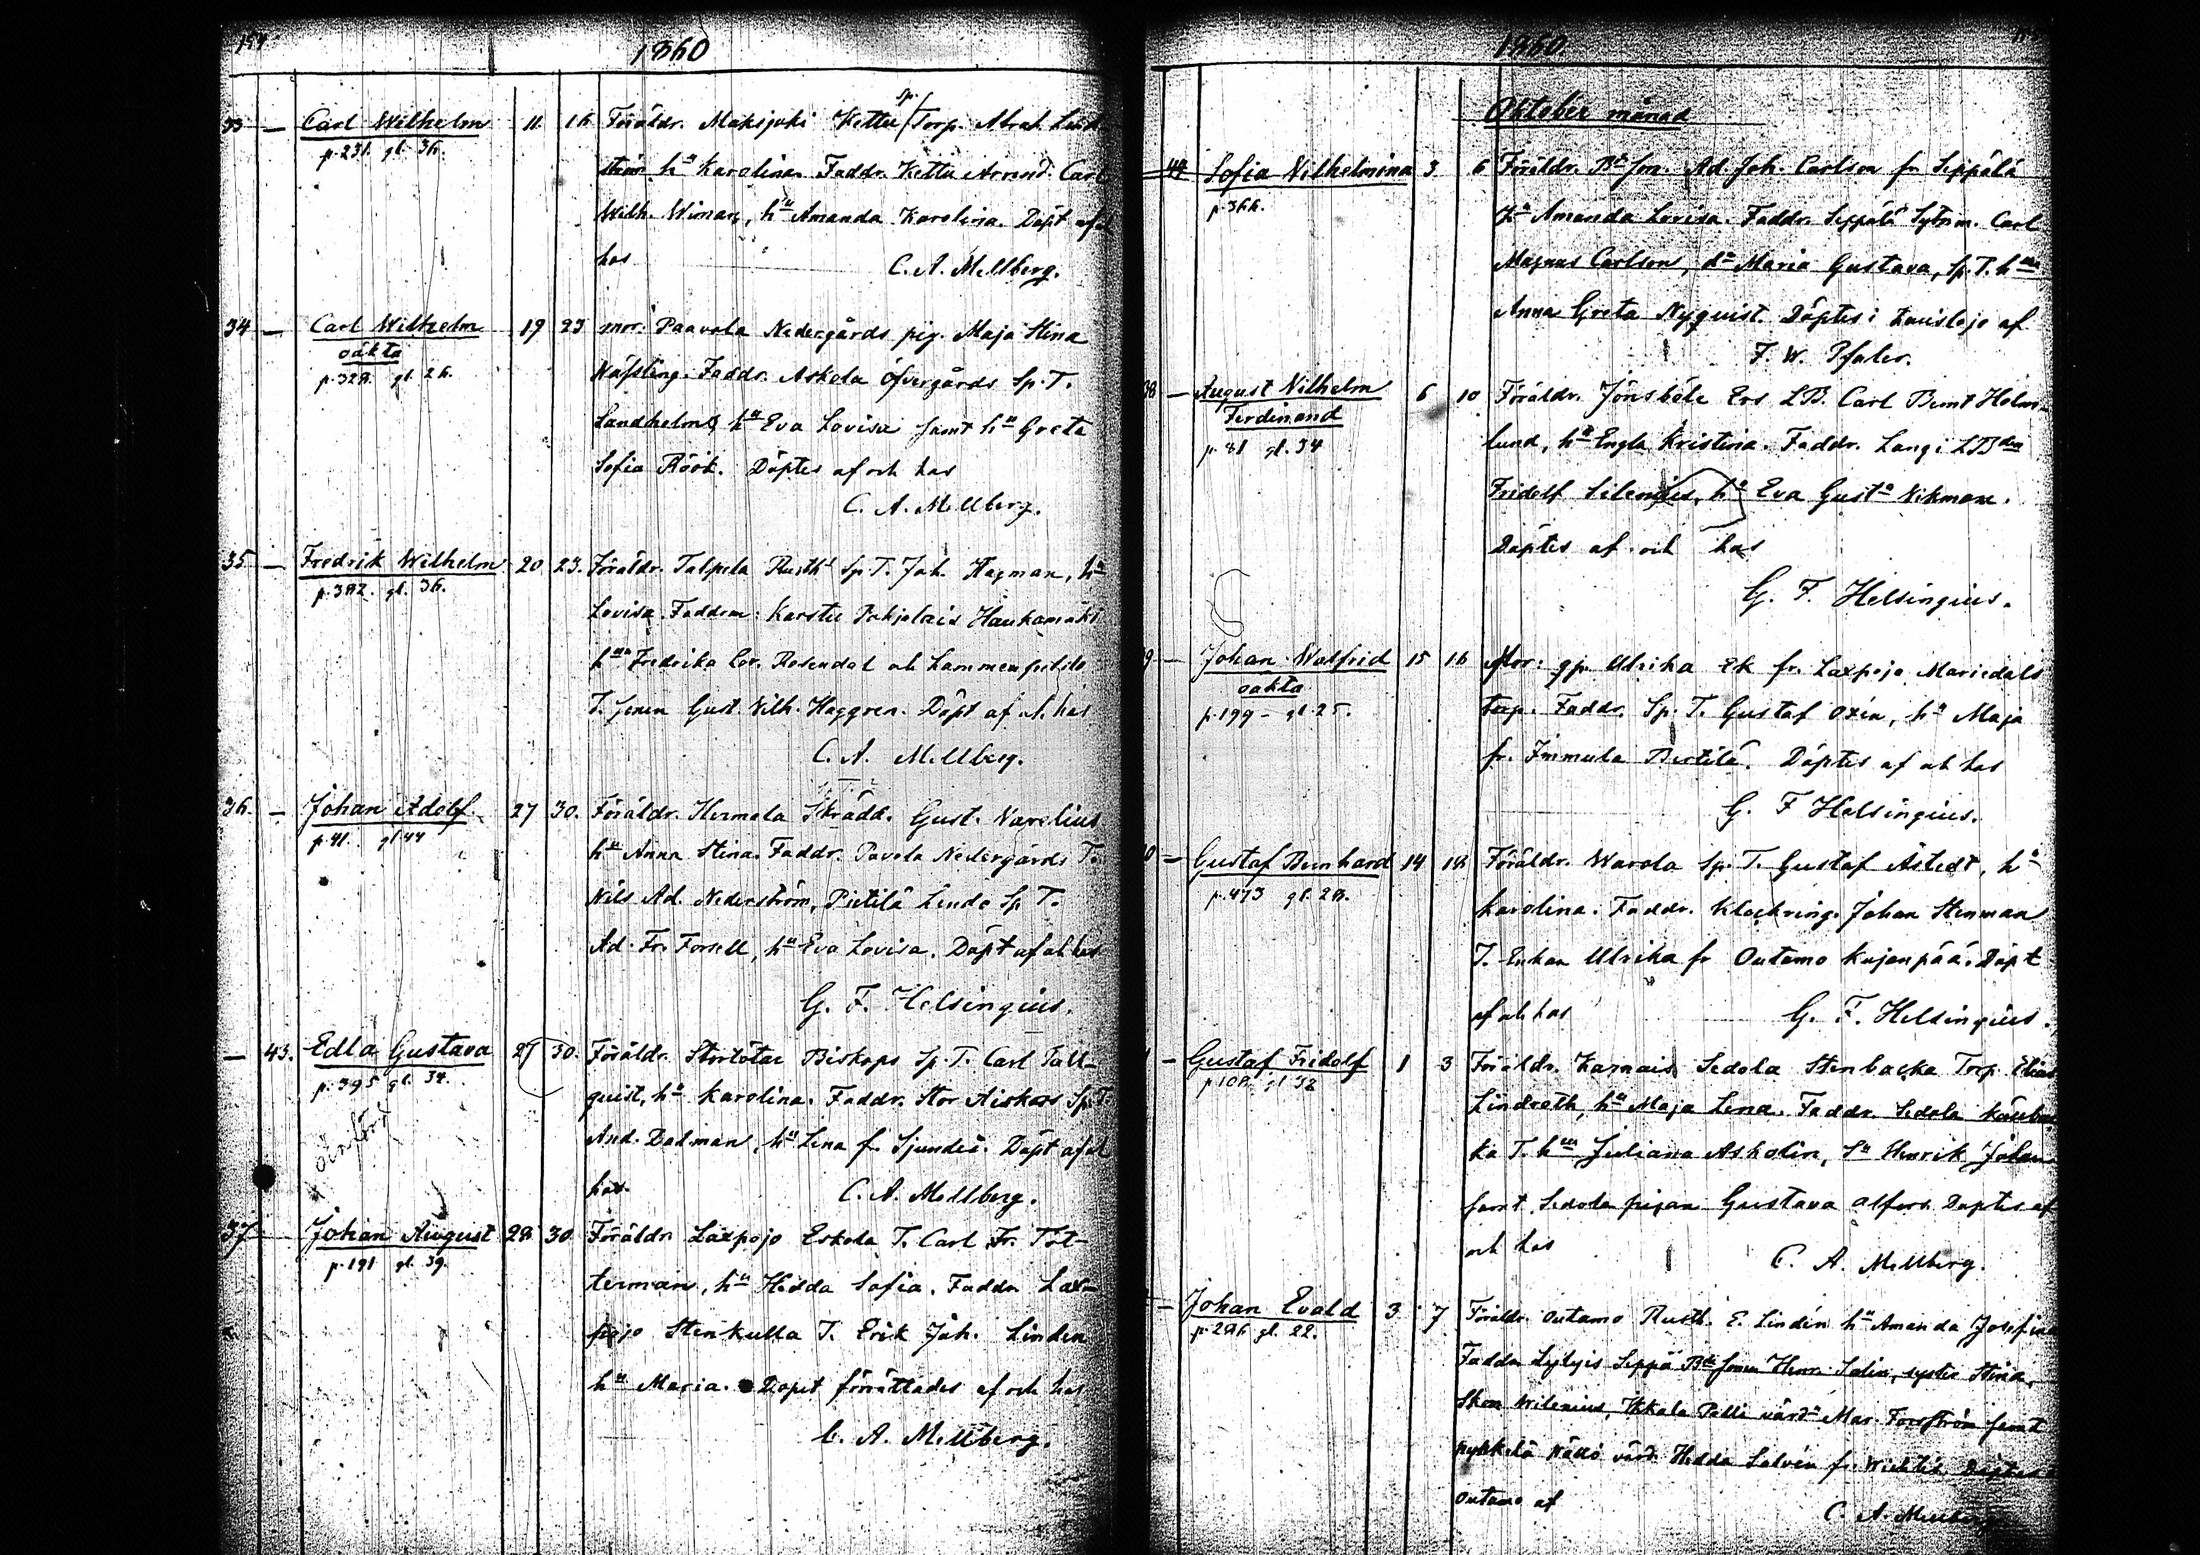 154
1860
33 — Carl Wilhelm 11 16 Föräldr. Maksjoki Kettu Sp. Torp. Abrah. Lind
p. 231. gl. 36. ström hu Karolina. Faddr. Kettu Arrend. Carl
Wilh. Wiman, hu Amanda Karolina. Döpt af
hos C. A. Mellberg.
34 — Carl Wilhelm 19 23 mor: Paavola Nedergårds pig. Maja Stina
oäkta
p. 328. gl. 26. Faddr. Askola Öfvergårds Sp. T.
Landholm, hu Eva Lovisa samt hu Greta
Sofia Röök. Döptes af och hos
C. A. Mellberg.
35 — Fredrik Wilhelm 20 23. Föräldr. Talpela Rusth Sp. T. Joh. Hagman, hu
p. 382. gl. 36. Lovisa. Faddrar: Karstu Pohjolais Haukamäki
hun Fredrika Rosendal
T. sonen Gust. Wilh. Haggren. Döpt af o. hos
C. A. Mellberg.
36. — Johan Adolf. 27 30. Föräldr. Hermala Skrädd. Gust. Varelius
p. 41. gl. 44 hu Anna Stina. Faddr. Pavola Nedergårds T.
Nils Ad. Nederström, Pietilä Lindo Sp T.
Ad. Fr. Forsell, hu Eva Lovisa. Döpt af och hos
G. F. Helsingius.
— 43. Edla Gustava 27 30. Föräldr. Stortötar Biskops Sp. T. Carl Tall-
p. 395 gl. 34. quist, hu Karolina. Faddr. Stor Aiskos Sp. T.
And. Dadman, hu Lena fr. Sjundeå. Döpt af o
hos. C. A. Mellberg.
37 — Johan August 28 30 Föräldr. Laxpojo Eskola T. Carl Fr. Töt-
p. 191 gl. 39. terman, hu Hedda Sofia. Faddr. Lax-
pojo Stenkulla T. Erik Joh. Linden
hu Maria. Dopet förrättades af och hos
C. A. Mellberg.
1860
Oktober månad
44 Sofia Wilhelmina 3 6 Föräldr. Bde son. Ad. Joh. Carlson fr. Seppälä
p. 366. hu Amanda Lovisa. Faddr. Seppälä Sytn. Carl
Magnus Carlson, do Maria Gustava, Sp. T. hun
Anna Greta Nyquist. Döptes i Karislojo af
F. W. Pfaler.
38 — August Wilhelm 6 10 Föräldr. Jönsböle Ers LB. Carl Bernt Holm-
Ferdinand lund, hu Engla Kristina. Faddr. Langi LBden
p. 81 gl. 34 Fridolf Silenius, hu Eva Gusta Wikman.
Döptes af och hos
G. F. Helsingius.
9 — Johan Walfrid 15 16 Mor: gp. Ulrika Ek fr. Laxpojo Mariedals
oäkta
p. 199 — gl. 25. torp. Faddr. Sp. T. Gustaf Oxén, hu Maja
fr. Immula Bertilä. Döptes af och hos
G. F Helsingius.
0 — Gustaf Bernhard 14 18 Föräldr. Warola Sp. T. Gustaf Åstedt, hu
p. 473 gl. 28. Karolina. Faddr. Klockring. Johan Stenman
T. Enkan Ulrika fr Outamo Kujanpää. Döpt
af och hos G. F. Helsingius.
1 — Gustaf Fridolf 1 3 Föräldr. Karnais Sedola Stenbacka Torp. Elias
p. 108. gl. 32 Lindroth, hu Maja Lena. Faddr. Sedola
ka T. hun Juliana Askolin, Sn Henrik Johan
samt Sedola pigan Gustava Alfors. Döptes af
och hos C. A. Mellberg.
— Johan Evald 3 7 Föräldr. Outamo Rusth. E. Lindén hu Amanda Josefina
p. 286 gl. 22. Faddr. Lylyis Seppä Bde sonen Henr. Salin, syster Stina,
Skom Wilenius, Ikkala Pelli värdn Mar. Forsström samt
Wällä värd. Hedda Salvén fr. Wichtis. Döptes i
Outamo af C. A. Mellberg